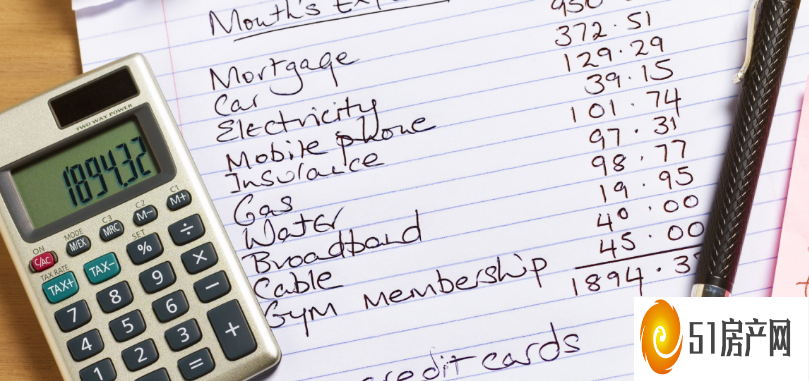 Month's
Mortgage 950
Car 372.51
Electricity 129.29
Mobile phone 39.15
Insurance 101.74
Gas 97.31
Water 98.77
Broadband 19.95
Cable 40.00
Gym membership 45.00
1894.3
credit cards
TWO WAY POWER
1894.32
ON MODE C3 C2 C1
C/AC M/EX MRC M− M+
TAX RATE SET
TAX+ TAX− % ÷
7 8 9 × −
4 5 6 +
1 2 3 =
51房产网